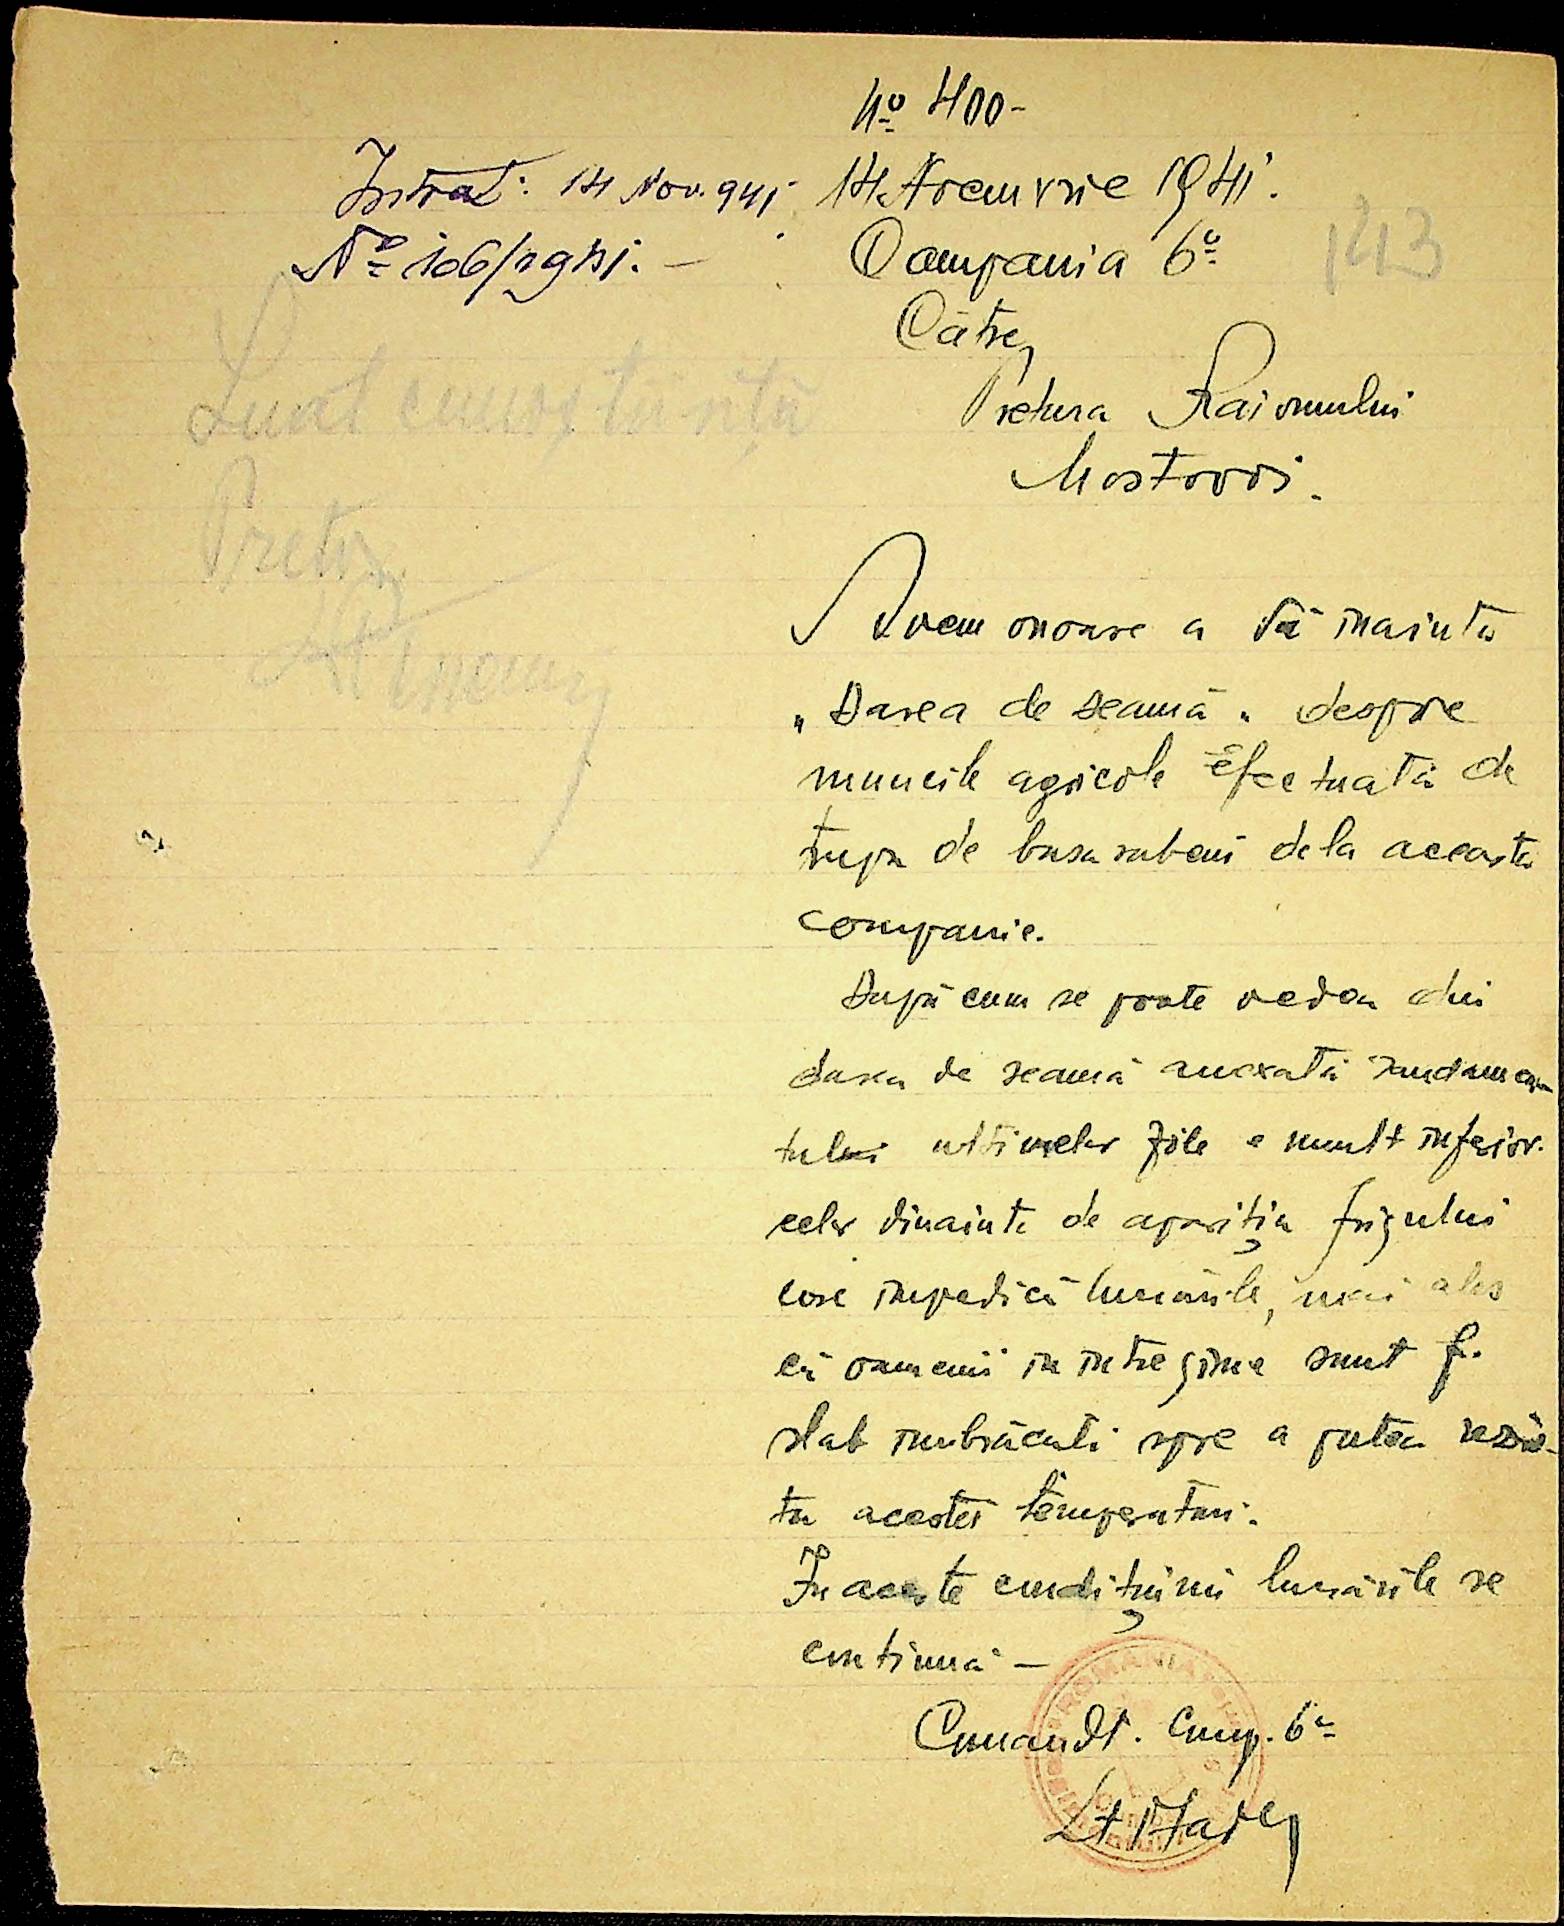 No 400-
Intrat: 14 Nov. 941
No 106/1941. -
14 Noemvrie 1941.
Compania 6a
143
Către,
Pretura Raionului
Mostovoi.
Luat cunoștință
Pretor
Avem onoare a Vă inainta
„Darea de seamă" despre
muncile agricole Efectuată de
trupa de basarabeni dela aceasta
companie.
După cum se poate vedea din
darea de seamă anexată randamen
tului ultimelor zile e mult inferior
celor dinainte de apariția frigului
care impedică lucrările, mai ales
că oamenii in intregime sunt f.
slab imbrăcati spre a putea rezis-
ta acestei temperaturi.
In aceste condițiuni lucrările se
continuă -
Comandt. Comp. 6a
Lt
ROMANIA